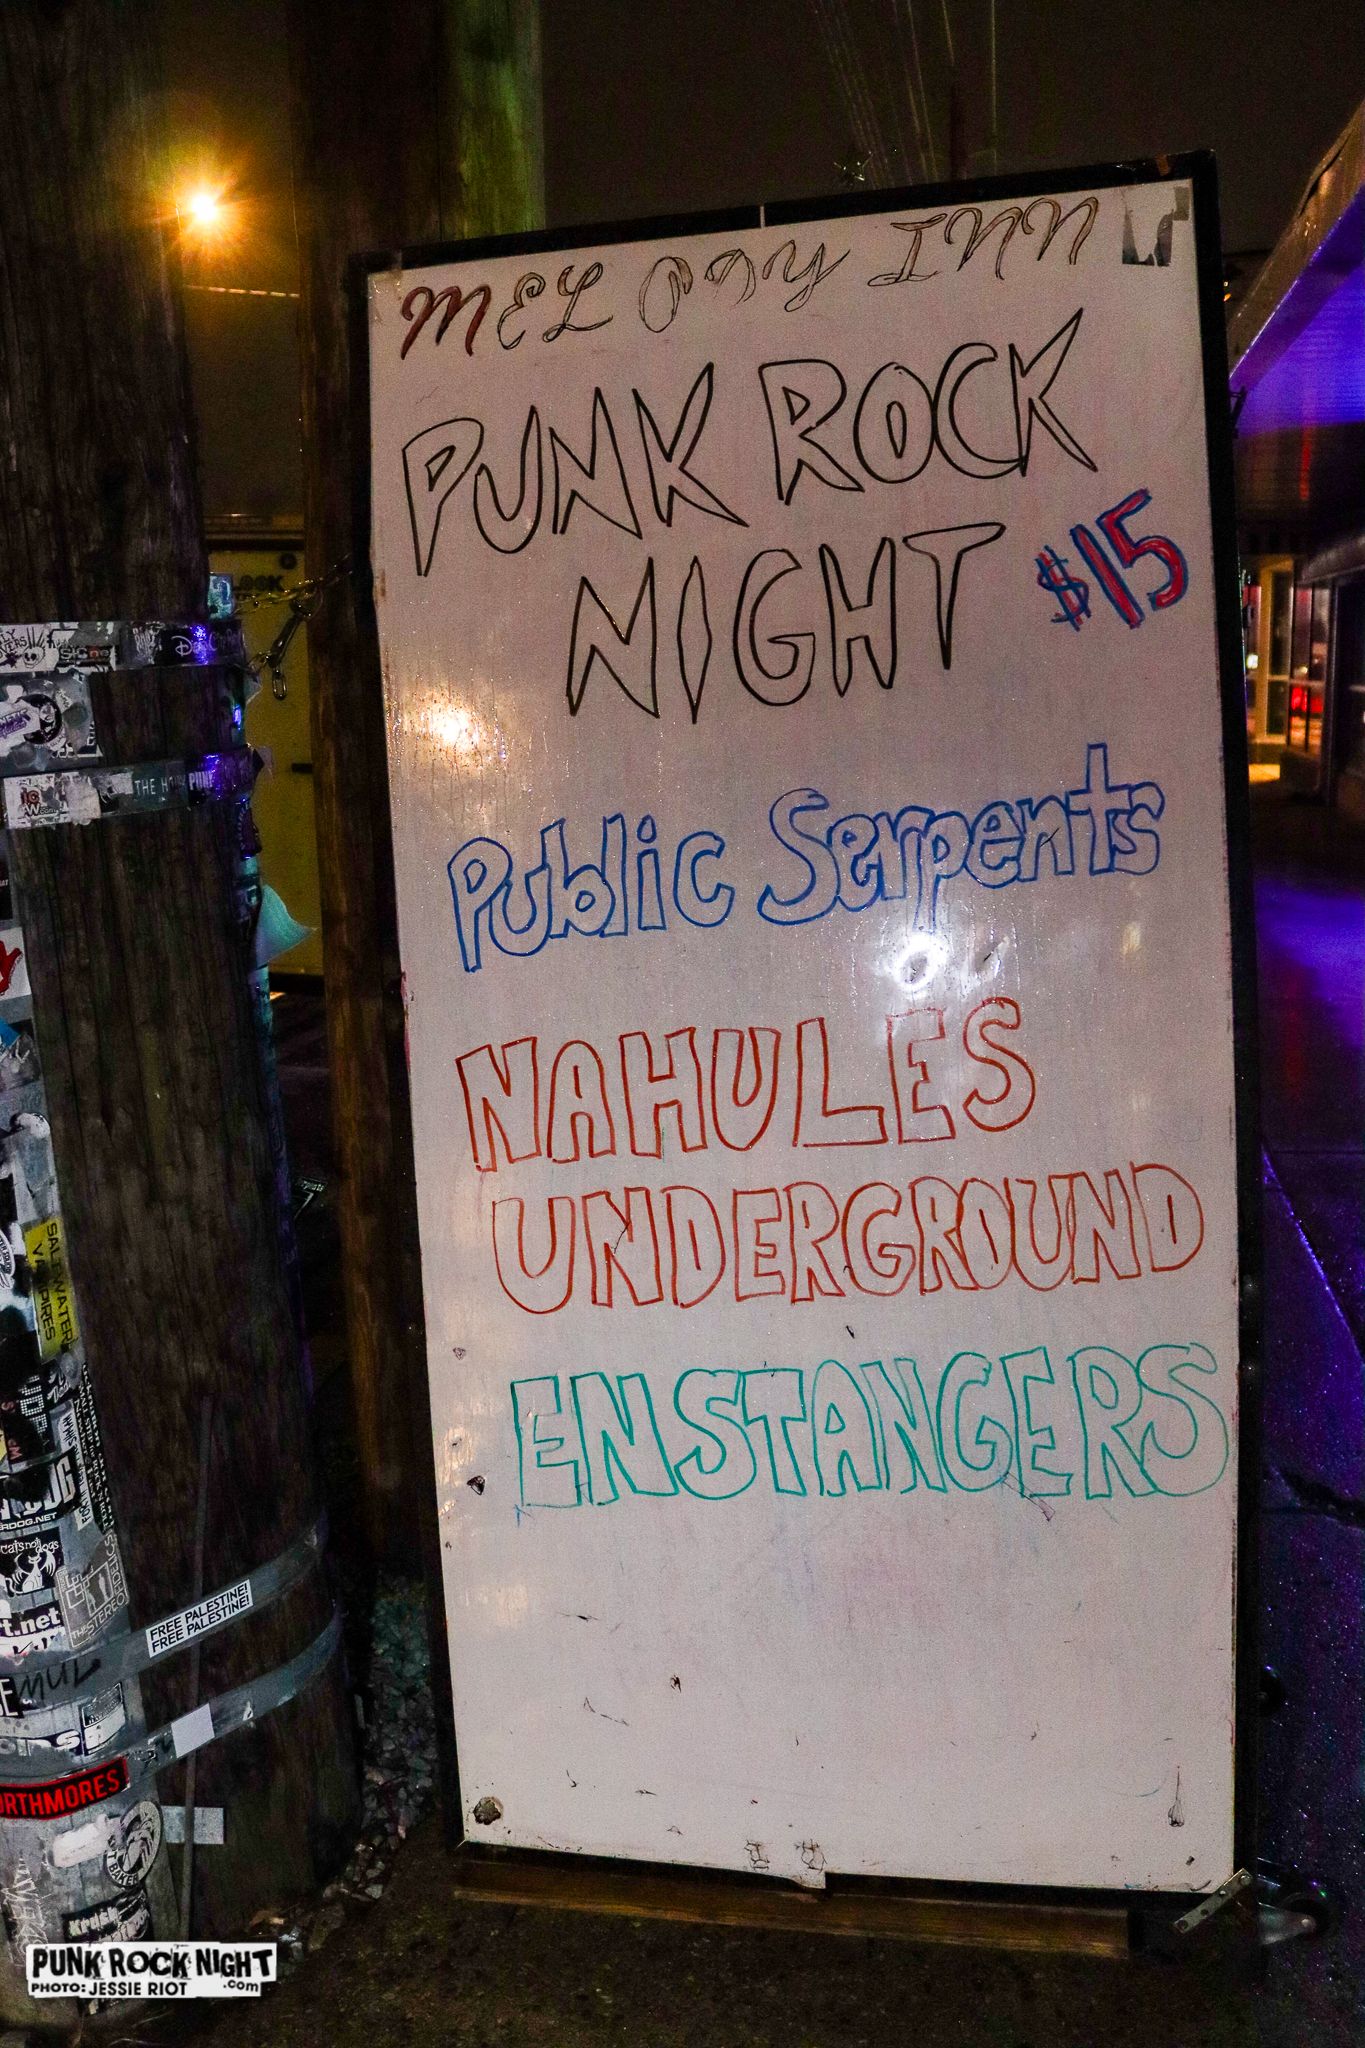 MELODY INN
PUNK ROCK
NIGHT $15
Public Serpents
NAHULES
UNDERGROUND
ENSTANGERS
THE
PUNK
SALTWATER
VAMPIRES
cats not dogs
FREE PALESTINE!
FREE PALESTINE!
MUL
Krush
PUNK ROCK NIGHT
.com
PHOTO: JESSIE RIOT